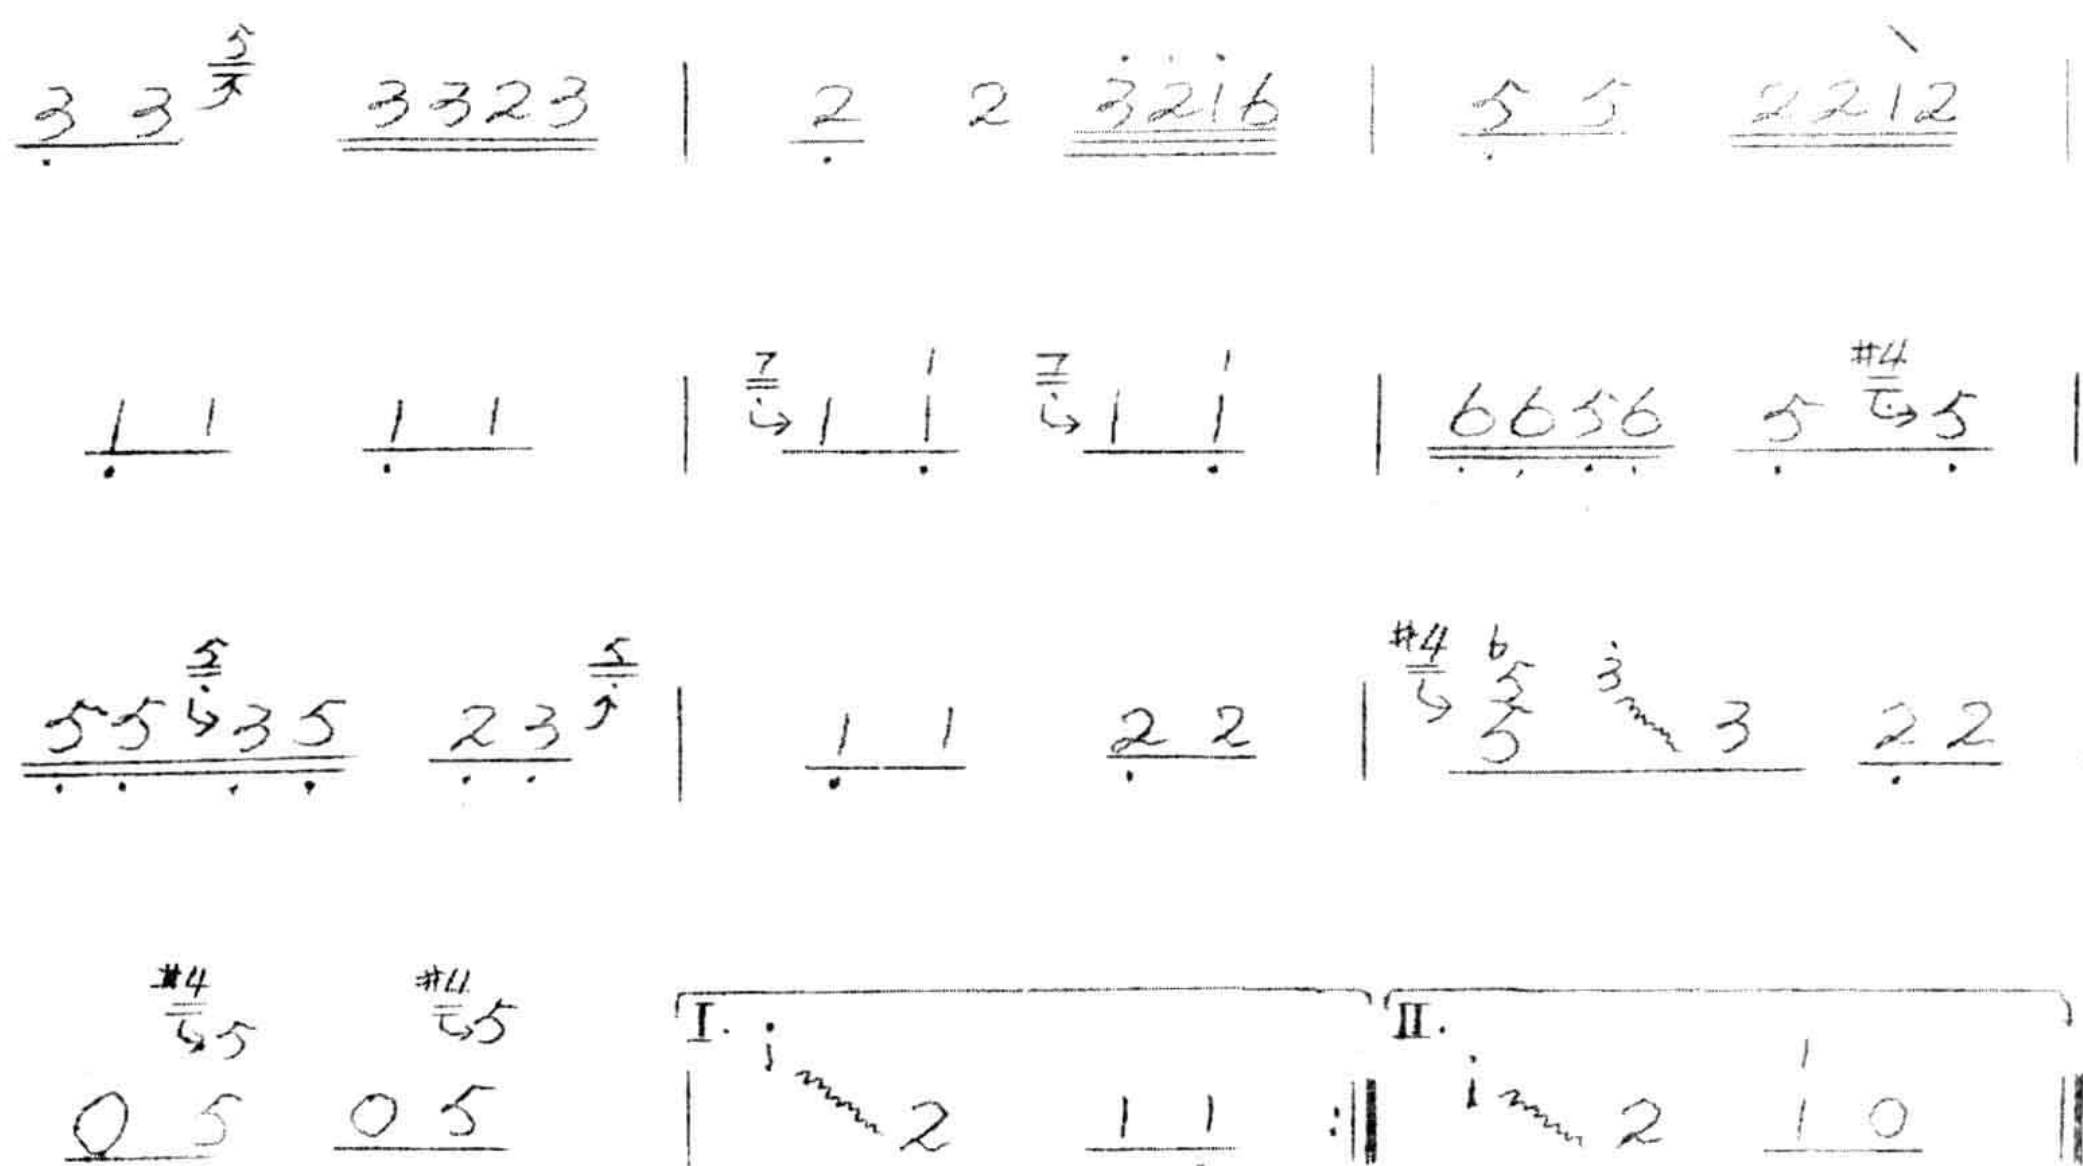 3 3 5 3323 | 2 2 3216 | 5 5 2212 |
1 1 1 1 | 7 1 1 1 7 1 1 1 | 6656 5 #4 5 |
55 5 35 23 5 | 1 1 2 2 | #4 6 5 5 3 3 2 2
0 #4 5 5 0 #4 5 5 | I. i 2 1 1 :|| II. i 2 1 1 0 ||